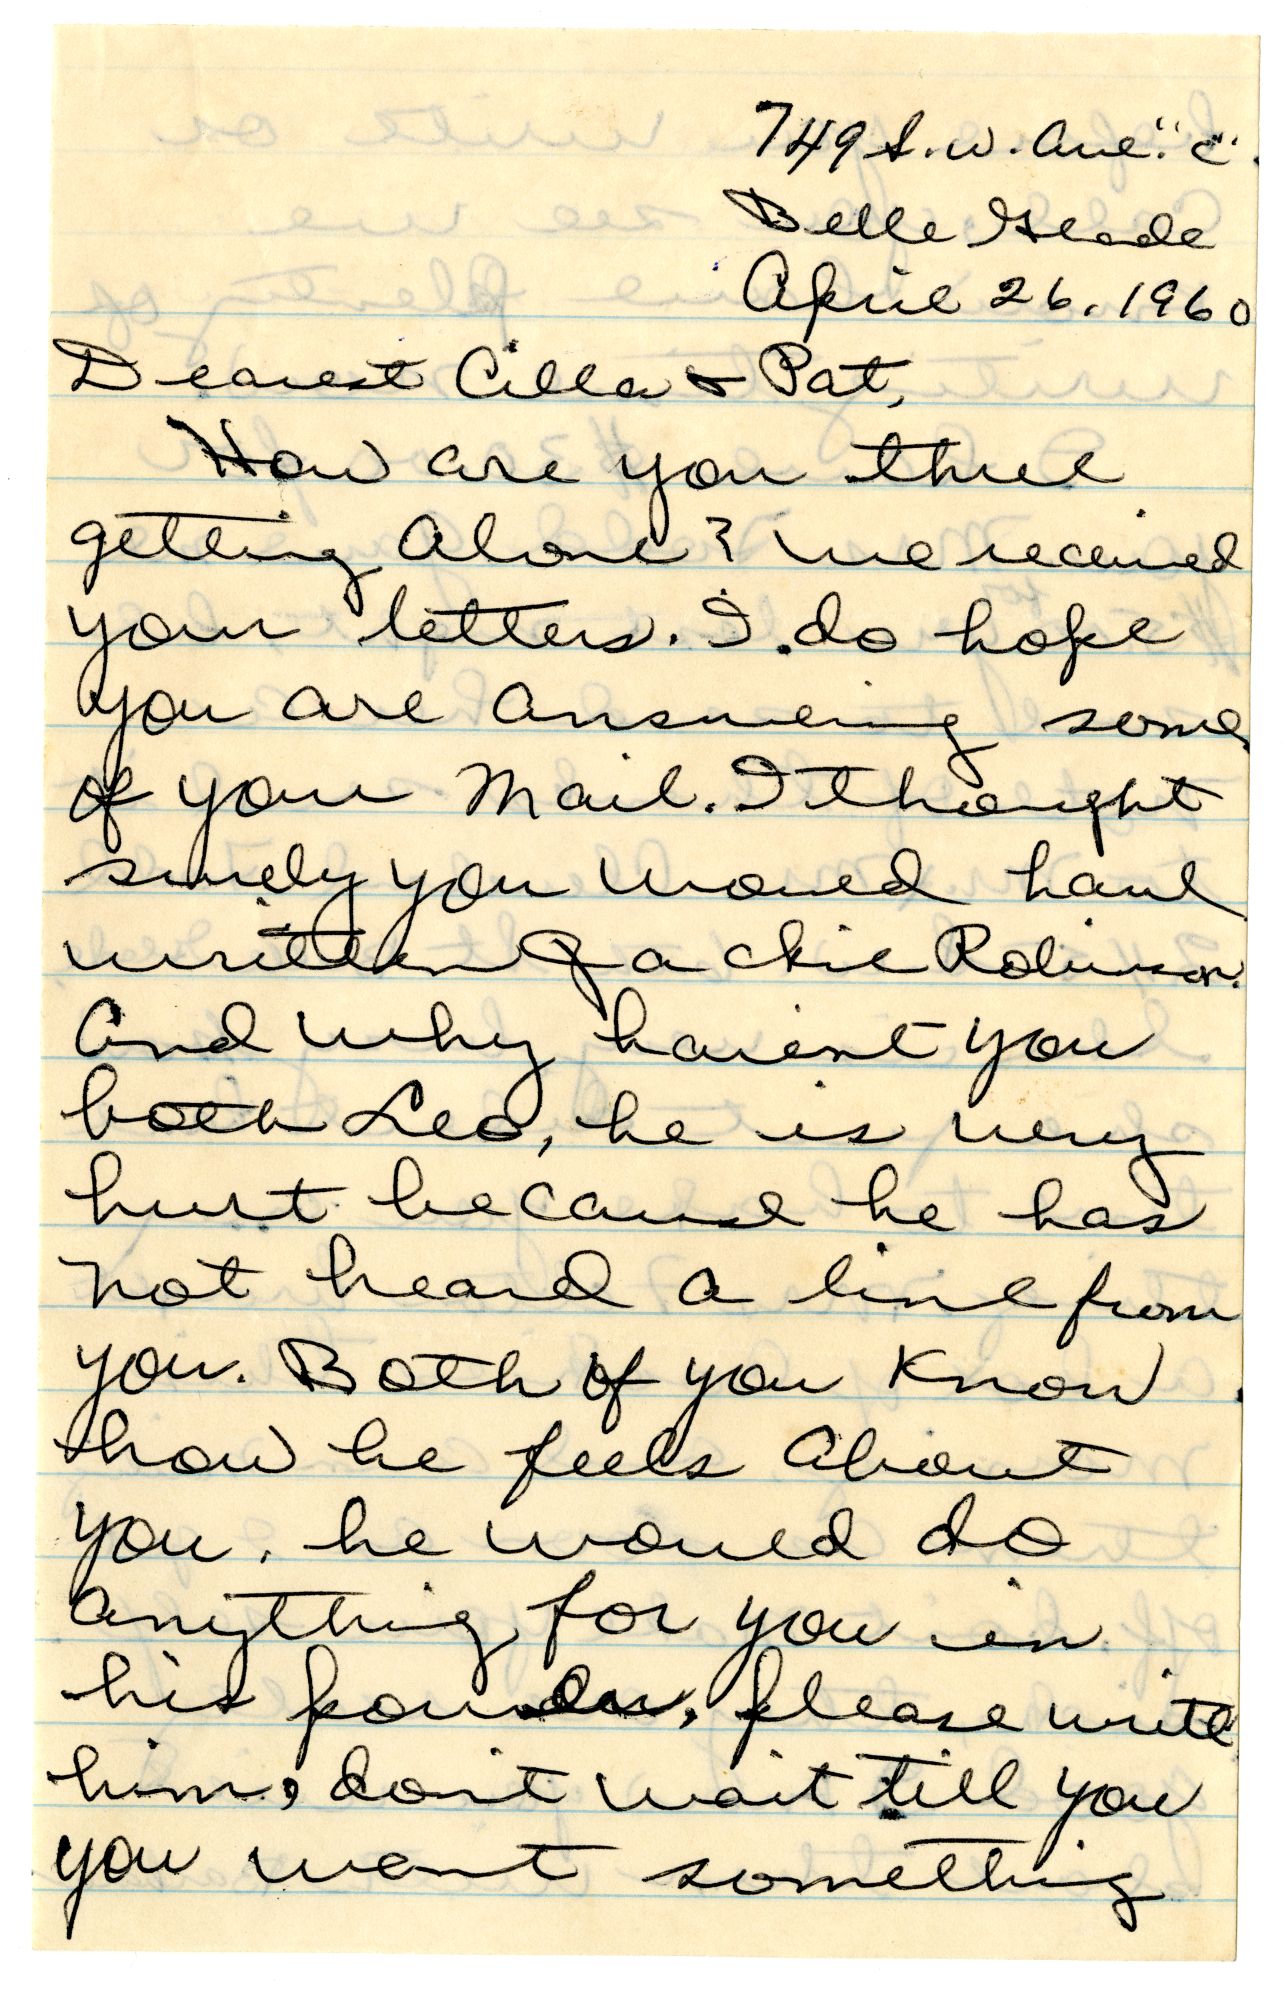 749 S.W. Ave. "C".
Belle Glade
April 26, 1960
Dearest Cilla & Pat,
How are you three
getting Alone? We received
your letters. I do hope
you are answering some
of your Mail. I thought
surely you would have
written Jackie Robinson.
And why havent you
both Leo, he is very
hurt because he has
not heard a line from
you. Both of you Know
how he feels about
you, he would do
anything for you in
his power, please write
him, don't wait till you
you want something